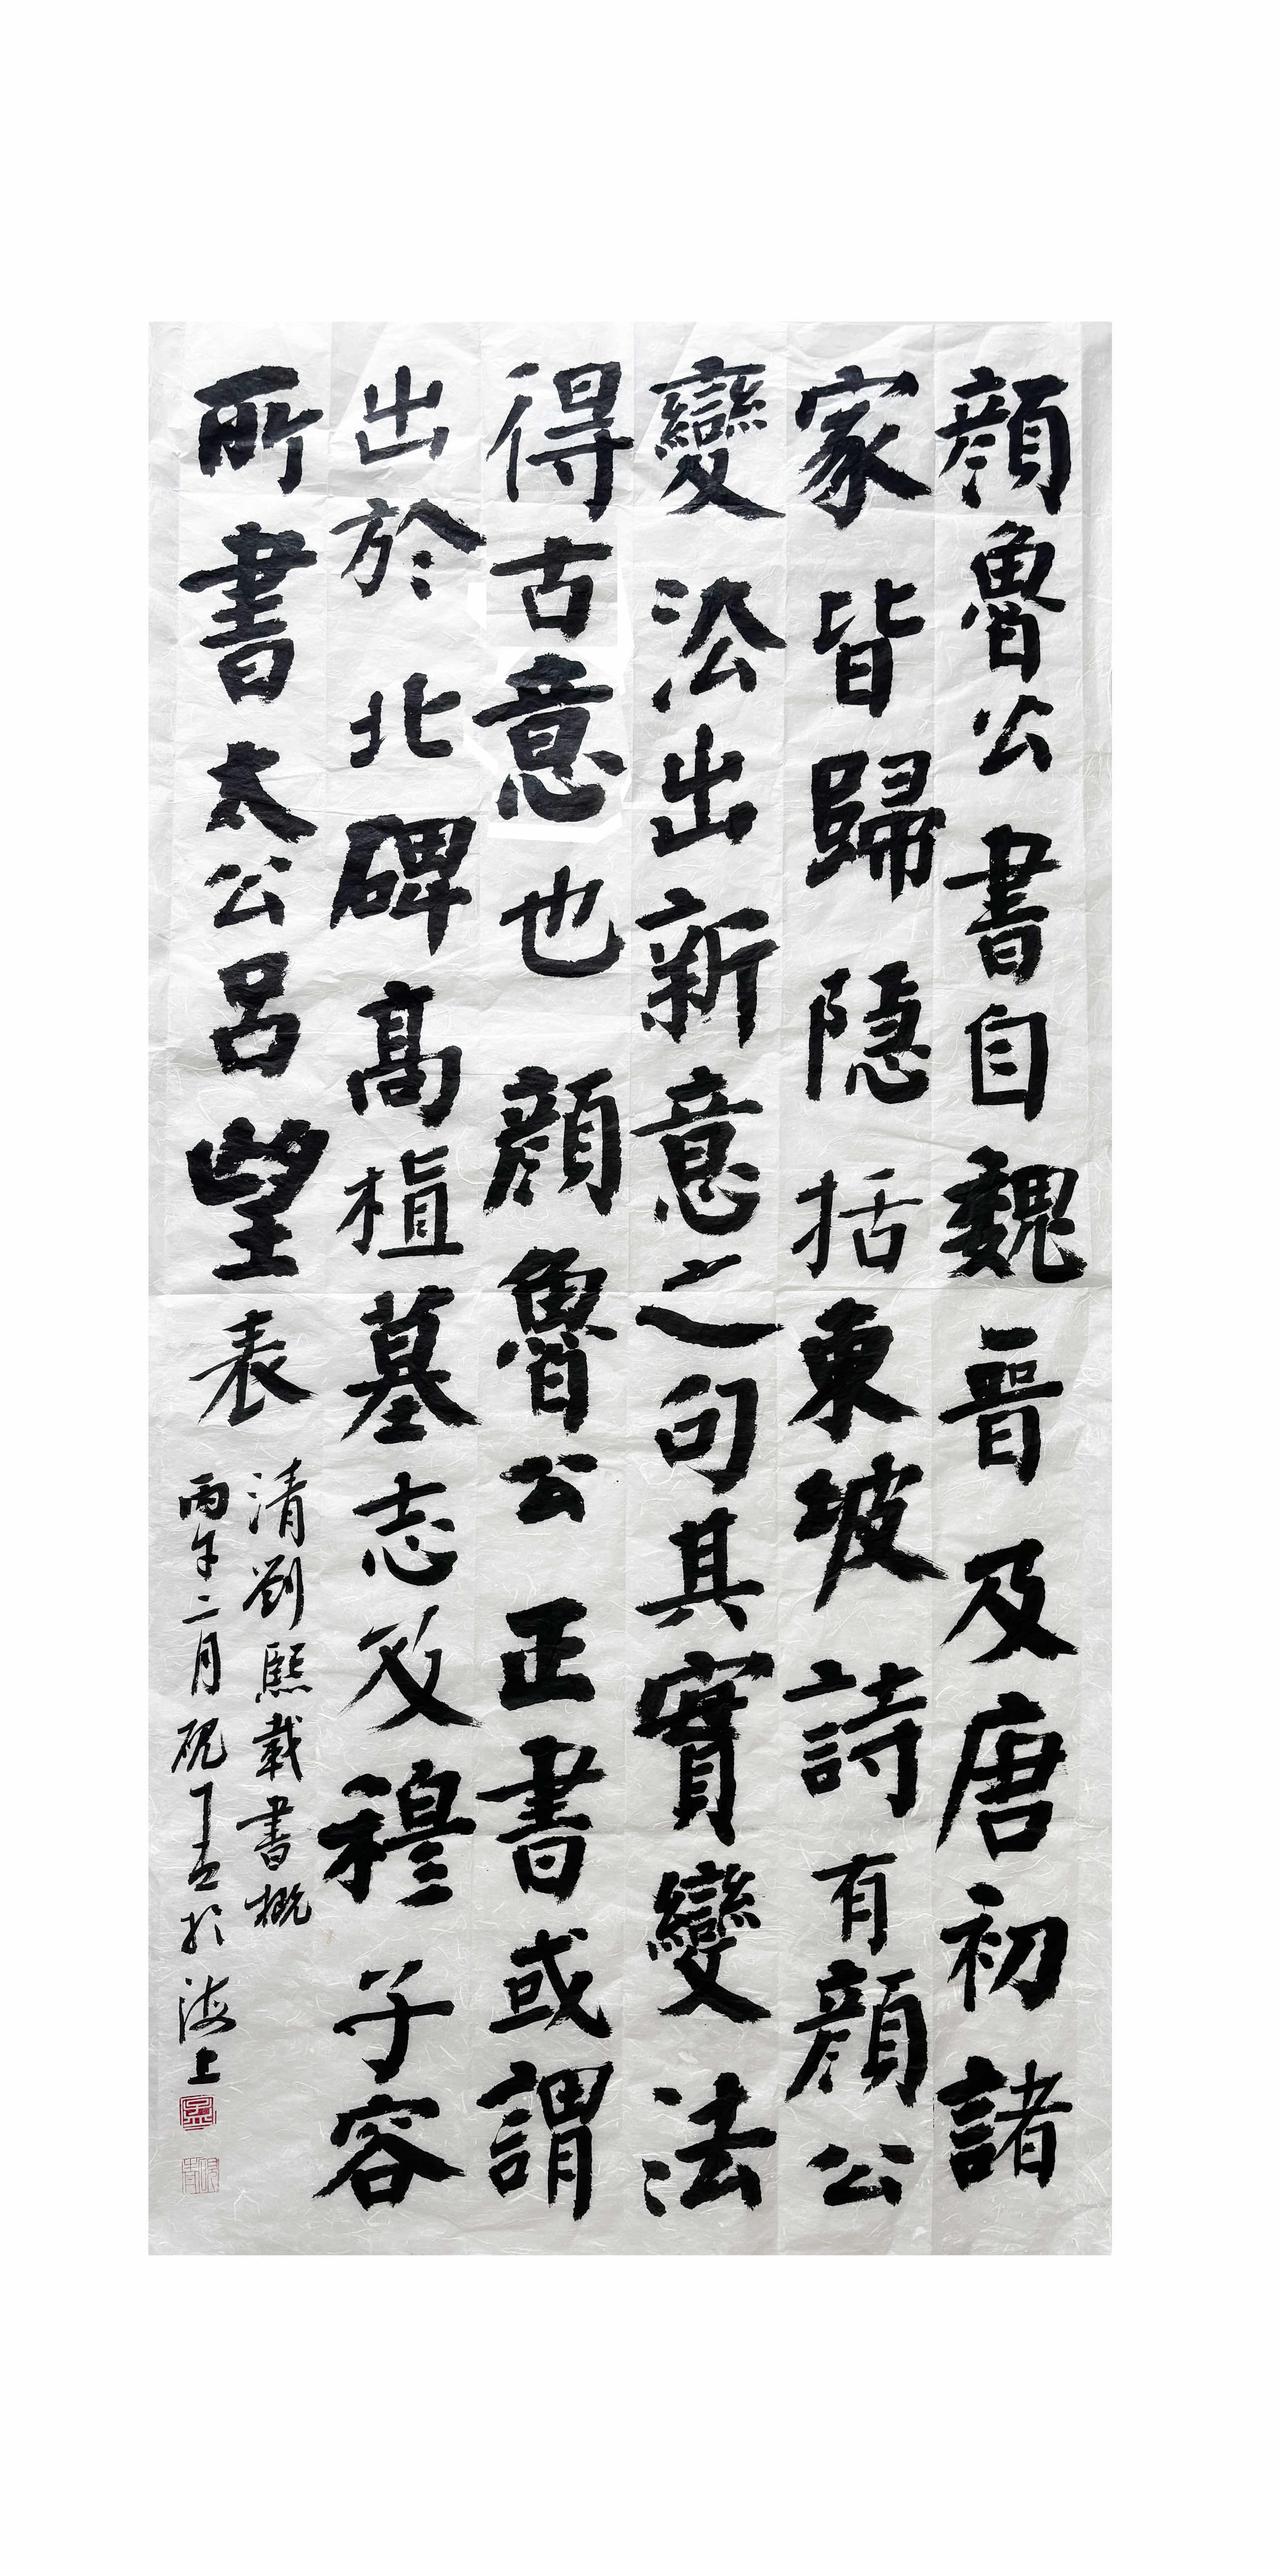 顔魯公書自魏晉及唐初諸
家皆歸隱括東坡詩有顔公
變法出新意之句其實變法
得古意也顔魯公正書或謂
出於北碑高植墓志及穆子容
所書太公呂望表
清劉熙載書概
丙午二月硯丁孟於海上